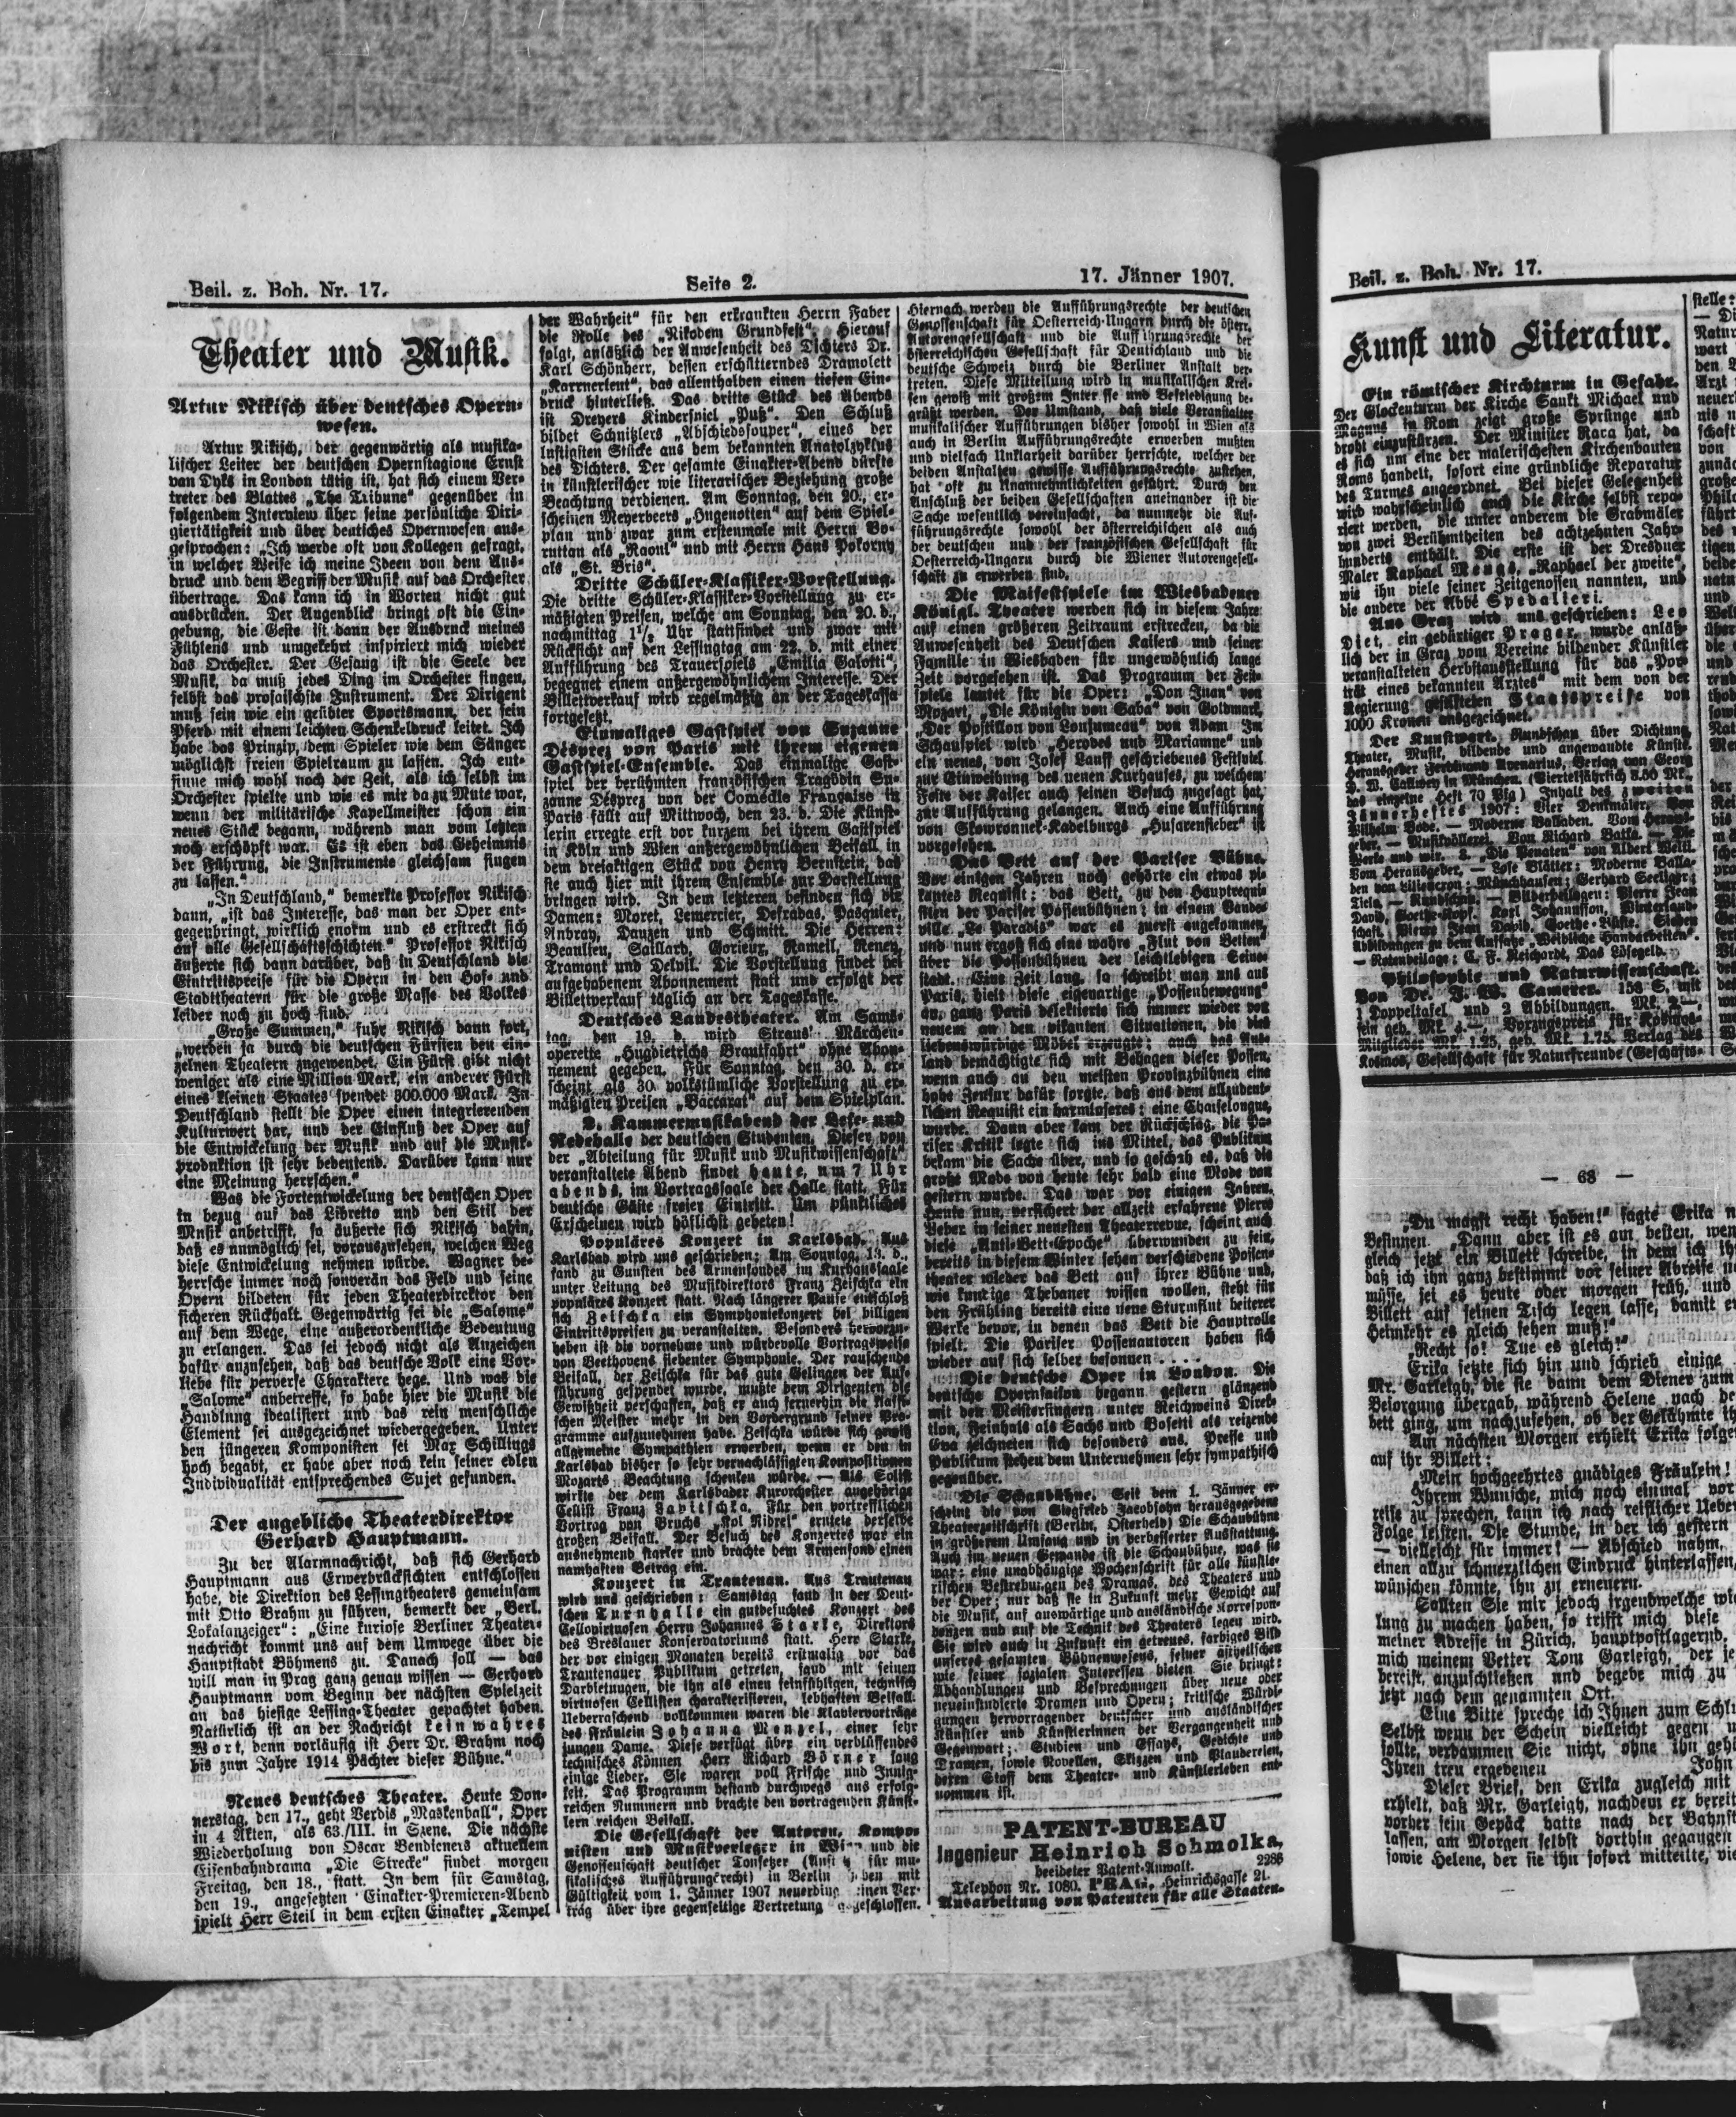 Beil. z. Boh. Nr. 17.
Seite 2.
17. Jänner 1907.
Theater und Musik.
Artur Nikisch über deutsches Opern-
wesen.
Artur Nikisch, der gegenwärtig als musika-
lischer Leiter der deutschen Opernstagione Ernst
van Dyks in London tätig ist, hat sich einem Ver-
treter des Blattes „The Tribune“ gegenüber in
folgendem Interview über seine persönliche Diri-
giertätigkeit und über deutsches Opernwesen aus-
gesprochen: „Ich werde oft von Kollegen gefragt,
in welcher Weise ich meine Ideen von dem Aus-
druck und dem Begriff der Musik auf das Orchester
übertrage. Das kann ich in Worten nicht gut
ausdrücken. Der Augenblick bringt oft die Ein-
gebung, die Geste ist dann der Ausdruck meines
Fühlens und umgekehrt inspiriert mich wieder
das Orchester. Der Gesang ist die Seele der
Musik, da muß jedes Ding im Orchester singen,
selbst das prosaischste Instrument. Der Dirigent
muß sein wie ein geübter Sportsmann, der sein
Pferd mit einem leichten Schenkeldruck leitet. Ich
habe das Prinzip, dem Spieler wie dem Sänger
möglichst freien Spielraum zu lassen. Ich ent-
sinne mich wohl noch der Zeit, als ich selbst im
Orchester spielte und wie es mir da zu Mute war,
wenn der militärische Kapellmeister schon ein
neues Stück begann, während man vom letzten
noch erschöpft war. Es ist eben das Geheimnis
der Führung, die Instrumente gleichsam singen
zu lassen.“
„In Deutschland,“ bemerkte Professor Nikisch
dann, „ist das Interesse, das man der Oper ent-
gegenbringt, wirklich enorm und es erstreckt sich
auf alle Gesellschaftsschichten.“ Professor Nikisch
äußerte sich dann darüber, daß in Deutschland die
Eintrittspreise für die Opern in den Hof- und
Stadttheatern für die große Masse des Volkes
leider noch zu hoch sind.
„Große Summen,“ fuhr Nikisch dann fort,
„werden ja durch die deutschen Fürsten den ein-
zelnen Theatern zugewendet. Ein Fürst gibt nicht
weniger als eine Million Mark, ein anderer Fürst
eines kleinen Staates spendet 800.000 Mark. In
Deutschland stellt die Oper einen integrierenden
Kulturwert dar, und der Einfluß der Oper auf
die Entwickelung der Musik und auf die Musik-
produktion ist sehr bedeutend. Darüber kann nur
eine Meinung herrschen.“
Was die Fortentwickelung der deutschen Oper
in bezug auf das Libretto und den Stil der
Musik anbetrifft, so äußerte sich Nikisch dahin,
daß es unmöglich sei, vorauszusehen, welchen Weg
diese Entwickelung nehmen würde. Wagner be-
herrsche immer noch souverän das Feld und seine
Opern bildeten für jeden Theaterdirektor den
sicheren Rückhalt. Gegenwärtig sei die „Salome“
auf dem Wege, eine außerordentliche Bedeutung
zu erlangen. Das sei jedoch nicht als Anzeichen
dafür anzusehen, daß das deutsche Volk eine Vor-
liebe für perverse Charaktere hege. Und was die
„Salome“ anbetreffe, so habe hier die Musik die
Handlung idealisiert und das rein menschliche
Element sei ausgezeichnet wiedergegeben. Unter
den jüngeren Komponisten sei Max Schillings
hoch begabt, er habe aber noch kein seiner edlen
Individualität entsprechendes Sujet gefunden.
Der angebliche Theaterdirektor
Gerhard Hauptmann.
Zu der Alarmnachricht, daß sich Gerhard
Hauptmann aus Erwerbrücksichten entschlossen
habe, die Direktion des Lessingtheaters gemeinsam
mit Otto Brahm zu führen, bemerkt der „Berl.
Lokalanzeiger“: „Eine kuriose Berliner Theater-
nachricht kommt uns auf dem Umwege über die
Hauptstadt Böhmens zu. Danach soll — das
will man in Prag ganz genau wissen — Gerhard
Hauptmann vom Beginn der nächsten Spielzeit
an das hiesige Lessing-Theater gepachtet haben.
Natürlich ist an der Nachricht kein wahres
Wort, denn vorläufig ist Herr Dr. Brahm noch
bis zum Jahre 1914 Pächter dieser Bühne.“
Neues deutsches Theater. Heute Don-
nerstag, den 17., geht Verdis „Maskenball“, Oper
in 4 Akten, als 63./III. in Szene. Die nächste
Wiederholung von Oscar Bendieners aktuellem
Eisenbahndrama „Die Strecke“ findet morgen
Freitag, den 18., statt. In dem für Samstag,
den 19., angesetzten Einakter-Premieren-Abend
spielt Herr Steil in dem ersten Einakter „Tempel
der Wahrheit“ für den erkrankten Herrn Faber
die Rolle des „Nikodem Grundfest“. Hierauf
folgt, anläßlich der Anwesenheit des Dichters Dr.
Karl Schönherr, dessen erschütterndes Dramolett
„Karrnerleut“, das allenthalben einen tiefen Ein-
druck hinterließ. Das dritte Stück des Abends
ist Dreyers Kinderspiel „Puß“. Den Schluß
bildet Schnitzlers „Abschiedssouper“, eines der
lustigsten Stücke aus dem bekannten Anatolzyklus
des Dichters. Der gesamte Einakter-Abend dürfte
in künstlerischer wie literarischer Beziehung große
Beachtung verdienen. Am Sonntag, den 20., er-
scheinen Meyerbeers „Hugenotten“ auf dem Spiel-
plan und zwar zum erstenmale mit Herrn Bo-
ruttau als „Raoul“ und mit Herrn Hans Pokorny
als „St. Bris“.
Dritte Schüler-Klassiker-Vorstellung.
Die dritte Schüler-Klassiker-Vorstellung zu er-
mäßigten Preisen, welche am Sonntag, den 20. d.,
nachmittag 1½ Uhr stattfindet und zwar mit
Rücksicht auf den Lessingtag am 22. d. mit einer
Aufführung des Trauerspiels „Emilia Galotti“,
begegnet einem außergewöhnlichem Interesse. Der
Billettverkauf wird regelmäßig an der Tageskassa
fortgesetzt.
Einmaliges Gastspiel von Suzanne
Désprez von Paris mit ihrem eigenen
Gastspiel-Ensemble. Das einmalige Gast-
spiel der berühmten französischen Tragödin Su-
zanne Désprez von der Comédie Française in
Paris fällt auf Mittwoch, den 23. d. Die Künst-
lerin erregte erst vor kurzem bei ihrem Gastspiel
in Köln und Wien außergewöhnlichen Beifall, in
dem dreiaktigen Stück von Henry Bernstein, das
sie auch hier mit ihrem Ensemble zur Darstellung
bringen wird. In dem letzteren befinden sich die
Damen: Moret, Lemercier, Defradas, Pasquier,
Anbray, Dauzen und Schmitt. Die Herren:
Beaulieu, Saillard, Gorieux, Rameil, Reney,
Tramont und Delvil. Die Vorstellung findet bei
aufgehabenem Abonnement statt und erfolgt der
Billettverkauf täglich an der Tageskasse.
Deutsches Landestheater. Am Sams-
tag, den 19. d. wird Straus' Märchen-
operette „Hugdietrichs Brautfahrt“ ohne Abon-
nement gegeben. Für Sonntag, den 30. d. er-
scheint als 30. volkstümliche Vorstellung zu er-
mäßigten Preisen „Baccarat“ auf dem Spielplan.
Kammermusikabend der Lese- und
Redehalle der deutschen Studenten. Dieser von
der „Abteilung für Musik und Musikwissenschaft“
veranstaltete Abend findet heute, um 7 Uhr
abends, im Vortragssaale der Halle statt. Für
deutsche Gäste freier Eintritt. Um pünktliches
Erscheinen wird höflichst gebeten!
Populäres Konzert in Karlsbad. Aus
Karlsbad wird uns geschrieben: Am Sonntag, 13. d.,
fand zu Gunsten des Armenfondes im Kurhaussaale
unter Leitung des Musikdirektors Franz Zeischka ein
populäres Konzert statt. Nach längerer Pause entschloß
sich Zeischka ein Symphoniekonzert bei billigen
Eintrittspreisen zu veranstalten. Besonders hervorzu-
heben ist die vornehme und würdevolle Vortragsweise
von Beethovens siebenter Symphonie. Der rauschende
Beifall, der Zeischka für das gute Gelingen der Auf-
führung gespendet wurde, mußte dem Dirigenten die
Gewißheit verschaffen, daß er auch fernerhin die klassi-
schen Meister mehr in den Vordergrund seiner Pro-
gramme aufzunehmen habe. Zeischka würde sich gewiß
allgemeine Sympathien erwerben, wenn er den in
Karlsbad bisher so sehr vernachlässigten Kompositionen
Mozarts Beachtung schenken würde. — Als Solist
wirkte der dem Karlsbader Kurorchester angehörige
Cellist Franz Japitschka. Für den vortrefflichen
Vortrag von Bruchs „Kol Nidrei“ erntete derselbe
großen Beifall. Der Besuch des Konzertes war ein
ausnehmend starker und brachte dem Armenfond einen
namhaften Betrag ein.
Konzert in Trautenau. Aus Trautenau
wird uns geschrieben: Samstag fand in der Deut-
schen Turnhalle ein gutbesuchtes Konzert des
Cellovirtuosen Herrn Johannes Starke, Direktors
des Breslauer Konservatoriums statt. Herr Starke,
der vor einigen Monaten bereits erstmalig vor das
Trautenauer Publikum getreten, fand mit seinen
Darbietungen, die ihn als einen feinfühligen, technisch
virtuosen Cellisten charakterisieren, lebhaften Beifall.
Ueberraschend vollkommen waren die Klaviervorträge
des Fräulein Johanna Menzel, einer sehr
jungen Dame. Diese verfügt über ein verblüffendes
technisches Können. Herr Richard Börner sang
einige Lieder. Sie waren voll Frische und Innig-
keit. Das Programm bestand durchwegs aus erfolg-
reichen Nummern und brachte den vortragenden Künst-
lern reichen Beifall.
Die Gesellschaft der Autoren, Kompo-
nisten und Musikverleger in Wien und die
Genossenschaft deutscher Tonsetzer (Anst für mu-
sikalisches Aufführungsrecht) in Berlin ben mit
Gültigkeit vom 1. Jänner 1907 neuerding inen Ver-
trag über ihre gegenseitige Vertretung geschlossen.
Hiernach werden die Aufführungsrechte der deutschen
Genossenschaft für Oesterreich-Ungarn durch die österr.
Autorengesellschaft und die Aufführungsrechte der
österreichischen Gesellschaft für Deutschland und die
deutsche Schweiz durch die Berliner Anstalt ver-
treten. Diese Mitteilung wird in musikalischen Krei-
sen gewiß mit großem Interesse und Befriedigung be-
grüßt werden. Der Umstand, daß viele Veranstalter
musikalischer Aufführungen bisher sowohl in Wien als
auch in Berlin Aufführungsrechte erwerben mußten
und vielfach Unklarheit darüber herrschte, welcher der
beiden Anstalten gewisse Aufführungsrechte zustehen,
hat oft zu Unannehmlichkeiten geführt. Durch den
Anschluß der beiden Gesellschaften aneinander ist die
Sache wesentlich vereinfacht, da nunmehr die Auf-
führungsrechte sowohl der österreichischen als auch
der deutschen und der französischen Gesellschaft für
Oesterreich-Ungarn durch die Wiener Autorengesell-
schaft zu erwerben sind.
Die Maifestspiele im Wiesbadener
Königl. Theater werden sich in diesem Jahre
auf einen größeren Zeitraum erstrecken, da die
Anwesenheit des Deutschen Kaisers und seiner
Familie in Wiesbaden für ungewöhnlich lange
Zeit vorgesehen ist. Das Programm der Fest-
spiele lautet für die Oper: „Don Juan“ von
Mozart, „Die Königin von Saba“ von Goldmark,
„Der Postillon von Lonjumeau“ von Adam. Im
Schauspiel wird „Herodes und Mariamne“ und
ein neues, von Josef Lauff geschriebenes Festspiel
zur Einweihung des neuen Kurhauses, zu welchem
Feste der Kaiser auch seinen Besuch zugesagt hat,
zur Aufführung gelangen. Auch eine Aufführung
von Skowronnek-Kadelburgs „Husarenfieber“ ist
vorgesehen.
Das Bett auf der Pariser Bühne.
Vor einigen Jahren noch gehörte ein etwas pi-
kantes Requisit: das Bett, zu den Hauptrequi-
siten der Pariser Possenbühnen; in einem Vaude-
ville „Le Paradis“ war es zuerst angekommen,
und nun ergoß sich eine wahre „Flut von Betten“
über die Possenbühnen der leichtlebigen Seine-
stadt. Eine Zeit lang, so schreibt man uns aus
Paris, hielt diese eigenartige „Possenbewegung“
an, ganz Paris delektierte sich immer wieder von
neuem an den pikanten Situationen, die dies
liebenswürdige Möbel erzeugte; auch das Aus-
land bemächtigte sich mit Behagen dieser Possen,
wenn auch an den meisten Provinzbühnen eine
hohe Zensur dafür sorgte, daß aus dem allzudeut-
lichen Requisit ein harmloseres: eine Chaiselongue,
wurde. Dann aber kam der Rückschlag, die Pa-
riser Kritik legte sich ins Mittel, das Publikum
bekam die Sache über, und so geschah es, daß die
große Mode von heute sehr bald eine Mode von
gestern wurde. Das war vor einigen Jahren.
Heute nun, versichert der allzeit erfahrene Pierre
Veber in seiner neuesten Theaterrevue, scheint auch
diese „Anti-Bett-Epoche“ überwunden zu sein,
bereits in diesem Winter sehen verschiedene Possen-
theater wieder das Bett auf ihrer Bühne und,
wie kundige Thebaner wissen wollen, steht für
den Frühling bereits eine neue Sturmflut heiterer
Werke bevor, in denen das Bett die Hauptrolle
spielt. Die Pariser Possenautoren haben sich
wieder auf sich selber besonnen . . . .
Die deutsche Oper in London. Die
deutsche Opernsaison begann gestern glänzend
mit den Meistersingern unter Reichweins Direk-
tion, Feinhals als Sachs und Bosetti als reizende
Eva zeichneten sich besonders aus. Presse und
Publikum stehen dem Unternehmen sehr sympathisch
gegenüber.
Die Schaubühne. Seit dem 1. Jänner er-
scheint die von Siegfried Jacobsohn herausgegebene
Theaterzeitschrift (Berlin, Osterheld) Die Schaubühne
in größerem Umfang und in verbesserter Ausstattung.
Auch im neuen Gewande ist die Schaubühne, was sie
war: eine unabhängige Wochenschrift für alle künstle-
rischen Bestrebungen des Dramas, des Theaters und
der Oper; nur daß sie in Zukunft mehr Gewicht auf
die Musik, auf auswärtige und ausländische Korrespon-
denzen und auf die Technik des Theaters legen wird.
Sie wird auch in Zukunft ein getreues, farbiges Bild
unseres gesamten Bühnenwesens, seiner ästhetischen
wie seiner sozialen Interessen bieten. Sie bringt:
Abhandlungen und Besprechungen über neue oder
neueinstudierte Dramen und Opern; kritische Würdi-
gungen hervorragender deutscher und ausländischer
Künstler und Künstlerinnen der Vergangenheit und
Gegenwart; Studien und Essays, Gedichte und
Dramen, sowie Novellen, Skizzen und Plaudereien,
deren Stoff dem Theater- und Künstlerleben ent-
nommen ist.
PATENT-BUREAU
Ingenieur Heinrich Schmolka,
beeideter Patent-Anwalt. 2286
Telephon Nr. 1080. PRAG, Heinrichsgasse 21.
Ausarbeitung von Patenten für alle Staaten.
Beil. z. Boh. Nr. 17.
Kunst und Literatur.
Ein römischer Kirchturm in Gefahr.
Der Glockenturm der Kirche Sankt Michael und
Magnus in Rom zeigt große Sprünge und
droht einzustürzen. Der Minister Rava hat, da
es sich um eine der malerischesten Kirchenbauten
Roms handelt, sofort eine gründliche Reparatur
des Turmes angeordnet. Bei dieser Gelegenheit
wird wahrscheinlich auch die Kirche selbst repa-
riert werden, die unter anderem die Grabmäler
von zwei Berühmtheiten des achtzehnten Jahr-
hunderts enthält. Die erste ist der Dresdner
Maler Raphael Mengs, „Raphael der zweite“,
wie ihn viele seiner Zeitgenossen nannten, und
die andere der Abbé Spedalieri.
Aus Graz wird uns geschrieben: Leo
Diet, ein gebürtiger Prager, wurde anläß-
lich der in Graz vom Vereine bildender Künstler
veranstalteten Herbstausstellung für das „Por-
trät eines bekannten Arztes“ mit dem von der
Regierung gestifteten Staatspreise von
1000 Kronen ausgezeichnet.
Der Kunstwart. Rundschau über Dichtung,
Theater, Musik, bildende und angewandte Künste.
Herausgeber Ferdinand Avenarius, Verlag von Georg
D. W. Callwey in München. (Vierteljährlich 3.50 Mk.,
das einzelne Heft 70 Pfg.) Inhalt des zweiten
Jännerheftes 1907: Vier Denkmäler. Von
Wilhelm Bode. — Moderne Balladen. Vom Heraus-
geber. — Musikvöllerei. Von Richard Batka. — Die
Werke und wir. 8. „Die Penaten“ von Albert Welti.
Vom Herausgeber. — Lose Blätter: Moderne Balla-
den von Liliencron; Münchhausen; Gerhard Seeliger;
Tielo. — Rundschau. — Bilderbeilagen: Pierre Jean
David, Goethe-Kopf. Karl Johannsson, Winterland-
schaft. Pierre Jean David, Goethe-Büste. Sieben
Abbildungen zu dem Aufsatze „Weibliche Handarbeiten“.
— Notenbeilage: C. F. Reichardt, Das Lösegeld.
Philosophie und Naturwissenschaft.
Von Dr. J. W. Camerer. 158 S. mit
1 Doppeltafel und 2 Abbildungen. Mk. 2.—,
fein geb. Mk. 3.—, Vorzugspreis für Kosmos-
Mitglieder Mk. 1.25, geb. Mk. 1.75. Verlag des
Kosmos, Gesellschaft für Naturfreunde (Geschäfts-
— 68 —
„Du magst recht haben!“ sagte Erika
Besinnen. „Dann aber ist es am besten,
gleich jetzt ein Billett schreibe, in dem ich
daß ich ihn ganz bestimmt vor seiner Abreise
müsse, sei es heute oder morgen früh, und
Billett auf seinen Tisch legen lasse, damit
Heimkehr es gleich sehen muß!“
„Recht so! Tue es gleich!“
Erika setzte sich hin und schrieb einige
Mr. Garleigh, die sie dann dem Diener zum
Besorgung übergab, während Helene nach
bett ging, um nachzusehen, ob der Gelähmte
Am nächsten Morgen erhielt Erika
auf ihr Billett:
„Mein hochgeehrtes gnädiges Fräulein!
Ihrem Wunsche, mich noch einmal vor
reise zu sprechen, kann ich nach reiflicher
Folge leisten. Die Stunde, in der ich gestern
— vielleicht für immer! — Abschied nahm,
einen allzu schmerzlichen Eindruck hinterlassen,
wünschen könnte, ihn zu erneuern.
Sollten Sie mir jedoch irgendwelche
lung zu machen haben, so trifft mich diese
meiner Adresse in Zürich, hauptpostlagernd,
mich meinem Vetter Tom Garleigh, der
bereist, anzuschließen und begebe mich zu
jetzt nach dem genannten Ort.
Eine Bitte spreche ich Ihnen zum
Selbst wenn der Schein vielleicht gegen
sollte, verdammen Sie nicht, ohne ihn
Ihren treu ergebenen John
Dieser Brief, den Erika zugleich mit
erhielt, daß Mr. Garleigh, nachdem er bereits
vorher sein Gepäck hatte nach der
lassen, am Morgen selbst dorthin gegangen
sowie Helene, der sie ihn sofort mitteilte,